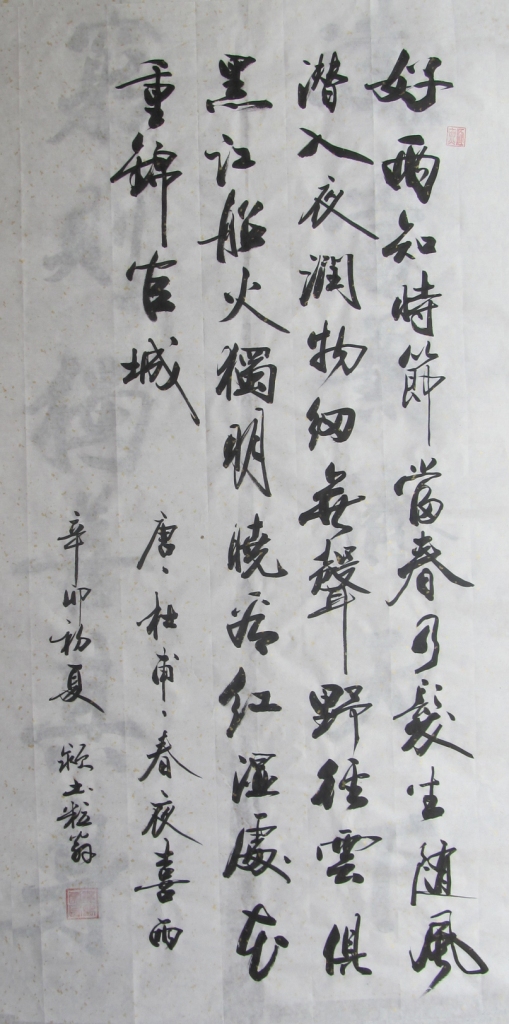 好雨知時節當春乃發生随風
潜入夜潤物細無聲野徑雲俱
黑江船火獨明曉看红湿處花
重錦官城
唐、杜甫、春夜喜雨
辛卯初夏